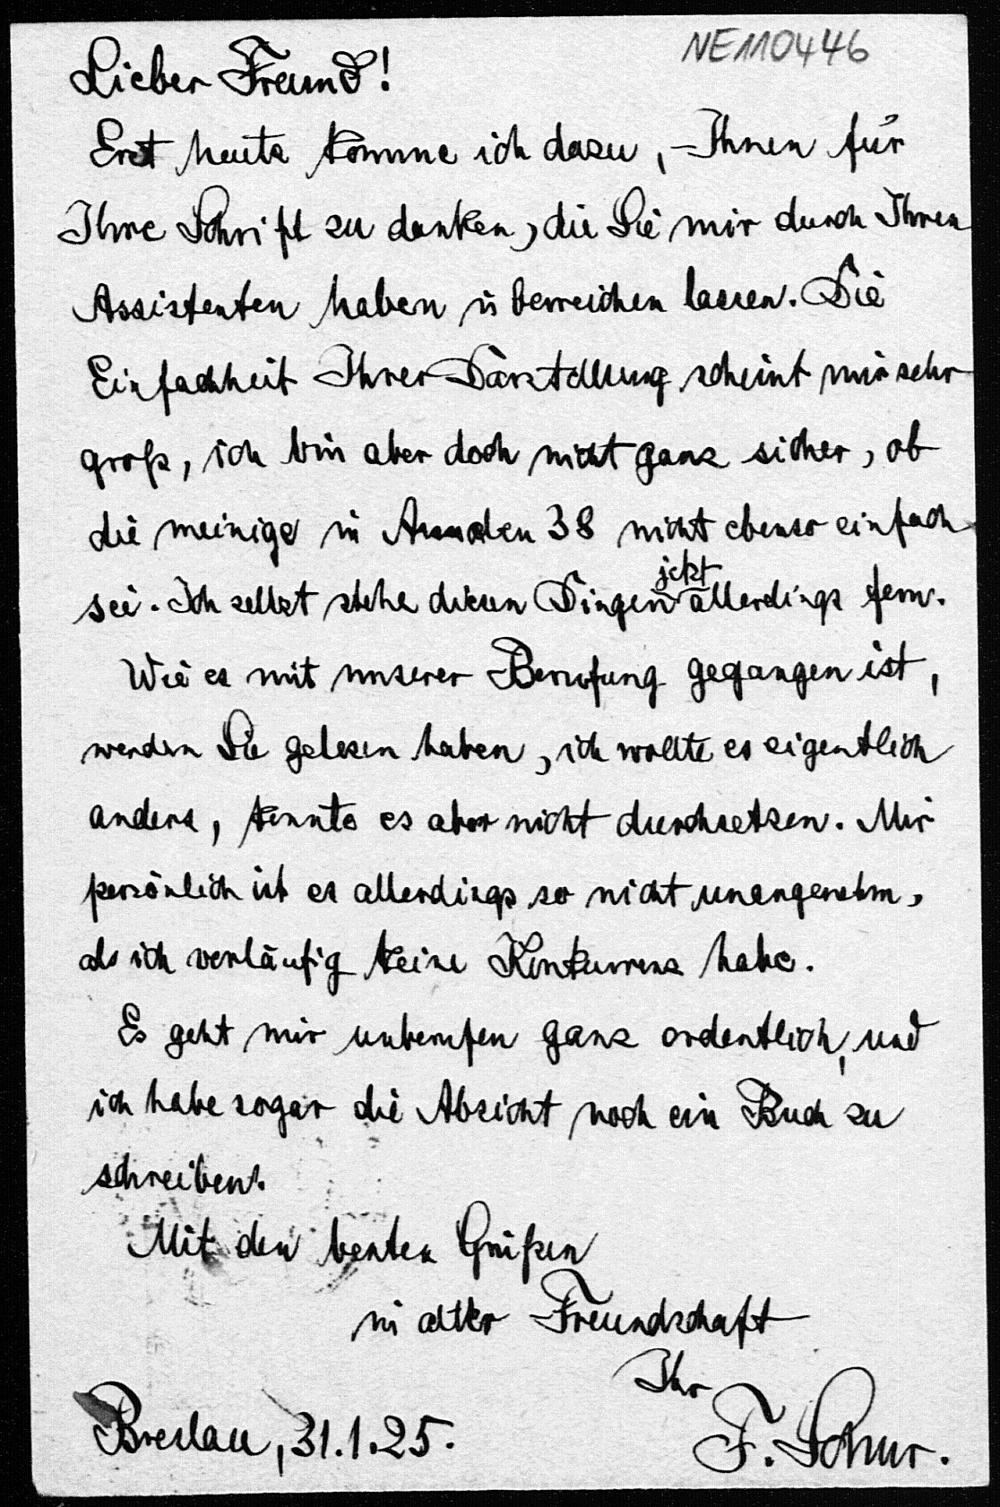 NE110446
Lieber Freund!
Erst heute komme ich dazu, Ihnen für
Ihre Schrift zu danken, die Sie mir durch Ihren
Assistenten haben überreichen lassen. Die
Einfachheit Ihrer Darstellung scheint mir sehr
groß, ich bin aber doch nicht ganz sicher, ob
die meinige in Annalen 38 nicht ebenso einfach
sei. Ich selbst stehe diesen Dingen jetzt allerdings fern.
Wie es mit unserer Berufung gegangen ist,
werden Sie gelesen haben, ich wollte es eigentlich
anders, konnte es aber nicht durchsetzen. Mir
persönlich ist es allerdings so nicht unangenehm,
als ich vorläufig keine Konkurrenz habe.
Es geht mir unberufen ganz ordentlich, und
ich habe sogar die Absicht noch ein Buch zu
schreiben.
Mit den besten Grüßen
in alter Freundschaft
Ihr
Breslau, 31.1.25. F. Schur.